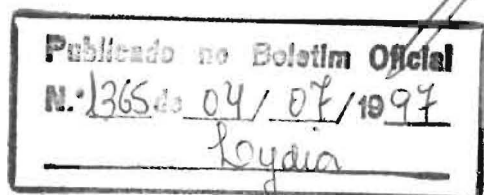 Publicado no Boletim Oficial
N.º 1365 de 04 / 07 / 1997
Lydia